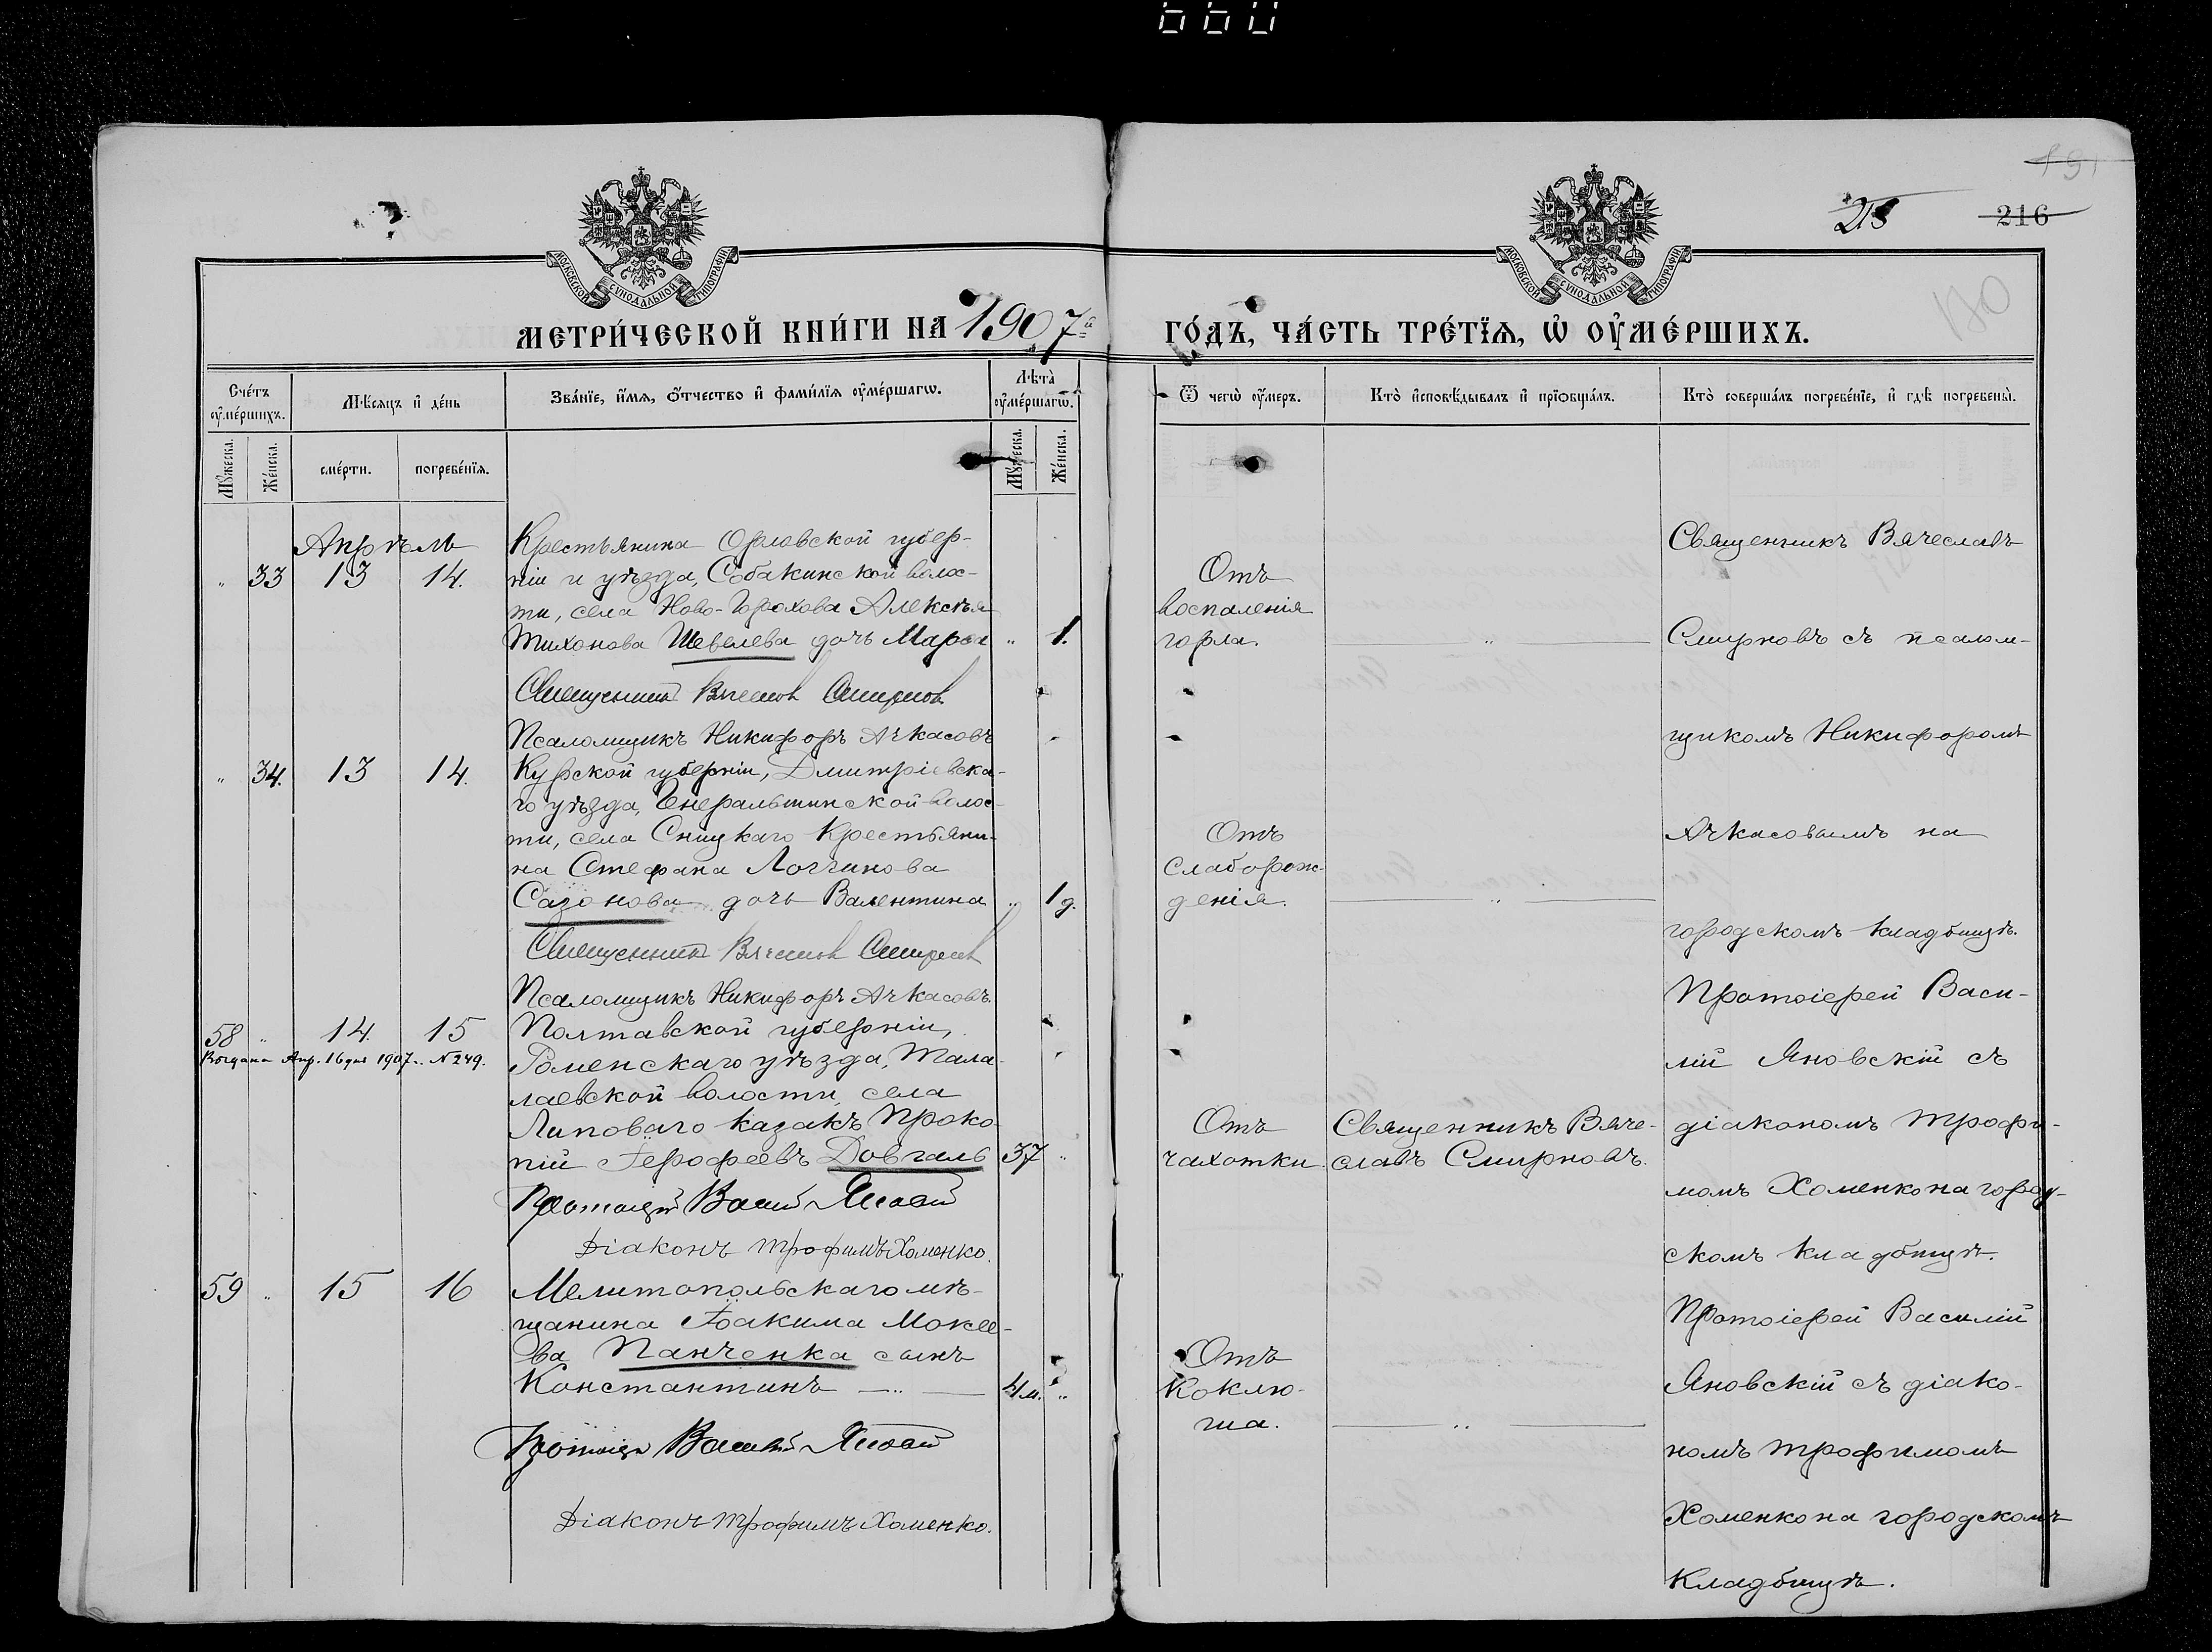 660
191
215
216
180
МОСКОВСКОЙ СѴНОДАЛЬНОЙ ТИПОГРАФІИ
МОСКОВСКОЙ СѴНОДАЛЬНОЙ ТИПОГРАФІИ
МЕТРИ́ЧЕСКОЙ КНИ́ГИ НА 1907й
ГО́ДЪ, ЧА́СТЬ ТРЕ́ТЇѦ, Ѽ ОУ҆МЕ́РШИХЪ.
Сче́тъ оу҆ме́ршихъ.
Мѣ́сѧцъ и҆ де́нь
Зва́нїе, и҆́мѧ, ѻ҆́тчество и҆ фами́лїѧ оу҆ме́ршагѡ.
Лѣ̀та оу҆ме́ршагѡ.
Ѿ чегѡ̀ оу҆́меръ.
Кто̀ и҆сповѣ́дывалъ и҆ прїѡбща́лъ.
Кто̀ соверша́лъ погребе́нїе, и҆ гдѣ̀ погребены̀.
Мꙋ́жеска.
Же́нска.
сме́рти.
погребе́нїѧ.
Мꙋ́жеска.
Же́нска.
Апрѣль
„ 33 13 14.
Крестьянина Орловской губер-
ніи и уѣзда, Собакинской волос-
ти, села Ново-Горохова Алексѣя
Тихонова Шевелева дочь Марѳа „ 1.
Священникъ Вячеслав Смирнов
Псаломщикъ Никифоръ Ачкасовъ
Отъ
воспаленія
горла.
„
Священникъ Вячеславъ
Смирновъ съ псалом-
щикомъ Никифоромъ
Ачкасовымъ на
городскомъ кладбищѣ.
„ 34. 13 14.
Курской губерніи, Дмитріевска-
го уѣзда, Генеральшинской волос-
ти, села Снищкаго Крестьяни-
на Стефана Логгинова
Сазонова дочь Валентина „ 1 д.
Священникъ Вячеслав Смирнов
Псаломщикъ Никифоръ Ачкасовъ.
Отъ
слаборож-
денія.
„
58 „ 14. 15
Выдана Апр. 16 дня 1907 г. № 249.
Полтавской губерніи,
Роменскаго уѣзда, Тала-
лаевской волости, села
Липоваго казакъ Проко-
пій Іерофеевъ Довгаль 37 „
Протоіерей Василій Яновскій
Діаконъ Трофимъ Хоменко.
Отъ
чахотки.
Священникъ Вяче-
славъ Смирновъ.
Протоіерей Васи-
лій Яновскій съ
діакономъ Трофи-
момъ Хоменко на город-
скомъ кладбищѣ.
59 „ 15 16
Мелитопольскаго мѣ-
щанина Іоакима Мокее-
ва Панченка сынъ
Константинъ — „ — 4 м. „
Протоіерей Василій Яновскій
Діаконъ Трофимъ Хоменко.
Отъ
Коклю-
ша.
„
Протоіерей Василій
Яновскій съ діако-
номъ Трофимомъ
Хоменко на городскомъ
кладбищѣ.